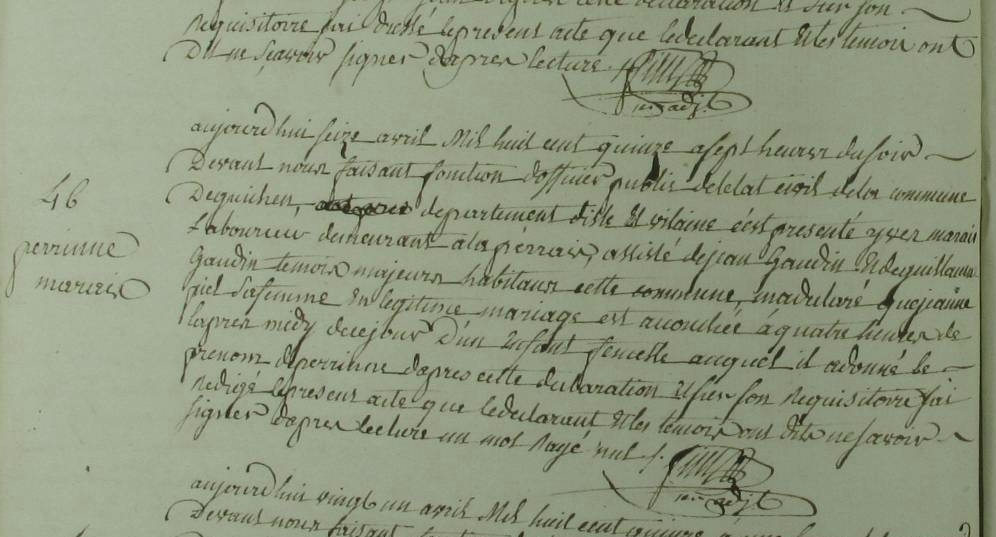 cette declaration et sur son
Requisitoire j'ai dressé le present acte que le declarant et les temoin ont
Dit ne sçavoir signer d'apres lecture.
1er adj.t
aujourd'hui seize avril Mil huit cent quinze a sept heures du soir
Devant nous faisant fonction d'officier public de l'etat civil de la commune
46
De guichen, departement d'isle et vilaine c'est presenté yves marais
perrinne
marais
Laboureur demeurant a la perrais, assisté de jean Gaudin et de guillaume
Gaudin temoins majeurs habitans cette commune, m'a declaré que jeanne
piel sa femme en legitime mariage est accouchée á quatre heures de
l'apres midy de ce jour D'un Enfant femelle auquel il a donné le
prenom de perrinne d'apres cette declaration et sur son Requisitoire j'ai
Redigé le present acte que le declarant et les temoins ont dits ne savoir
signer d'apres lecture un mot Rayé nul
1er adj.t
aujourd'hui vingt un avril Mil huit cent quinze á
Devant nous faisant